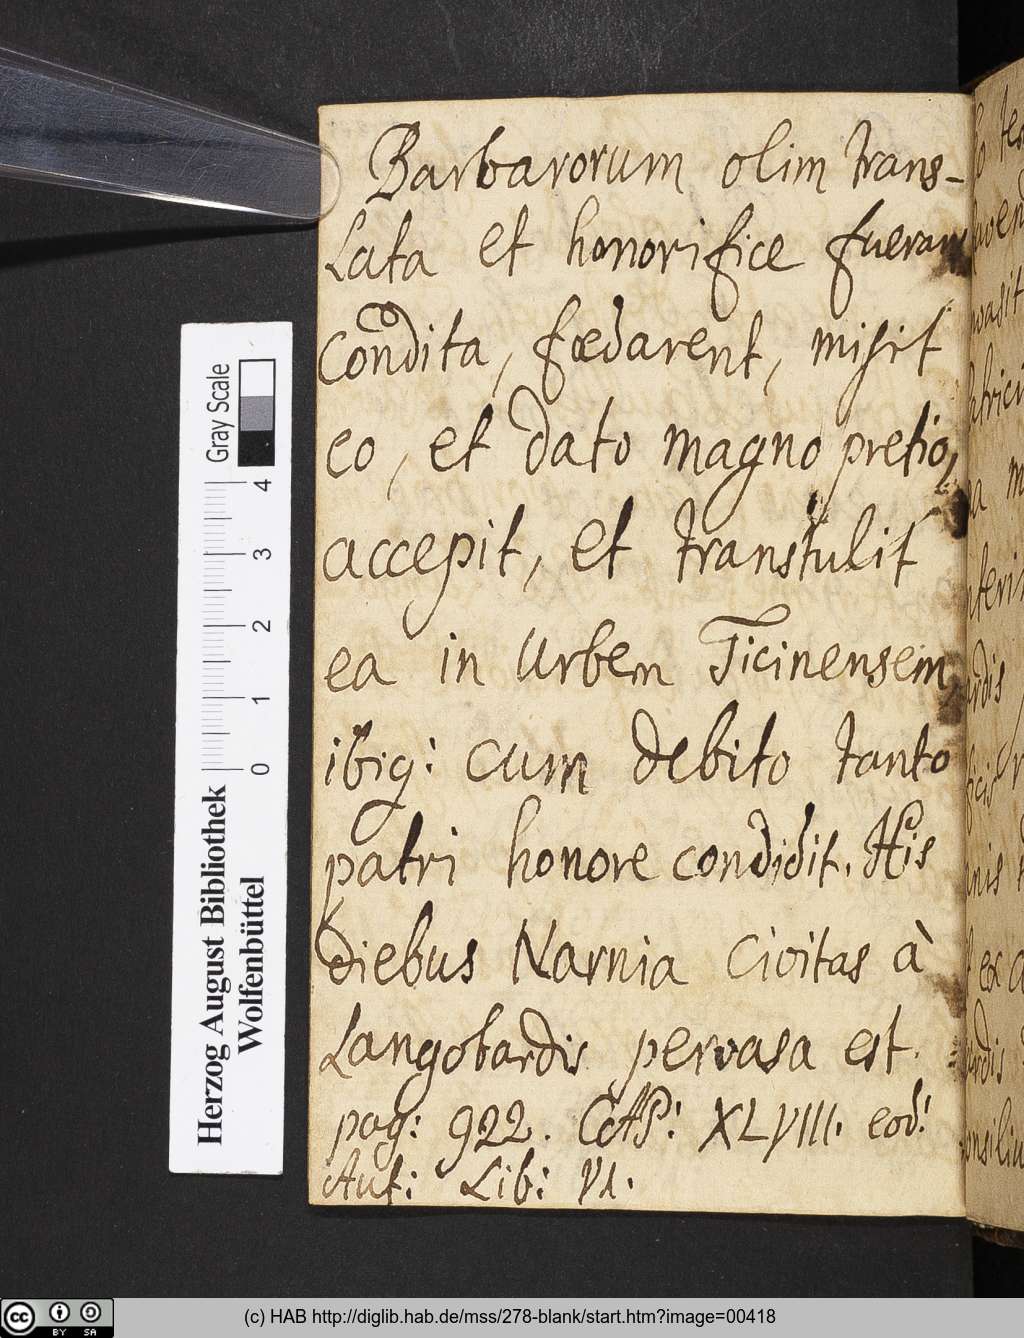 Barbarorum olim trans-
Lata et honorifice fuerant
condita, fœdarent, misit
eo, et dato magno pretio,
accepit, et transtulit
ea in Urbem Ticinensem
ibiq: cum debito tanto
patri honore condidit. His
diebus Narnia Civitas à
Langobardis pervasa est.
pag: 922. CAP: XLVIII. eod:
Aut: Lib: VI.
Gray Scale
4
3
2
1
0
Herzog August Bibliothek
Wolfenbüttel
ex
cc
BY SA
(c) HAB http://diglib.hab.de/mss/278-blank/start.htm?image=00418